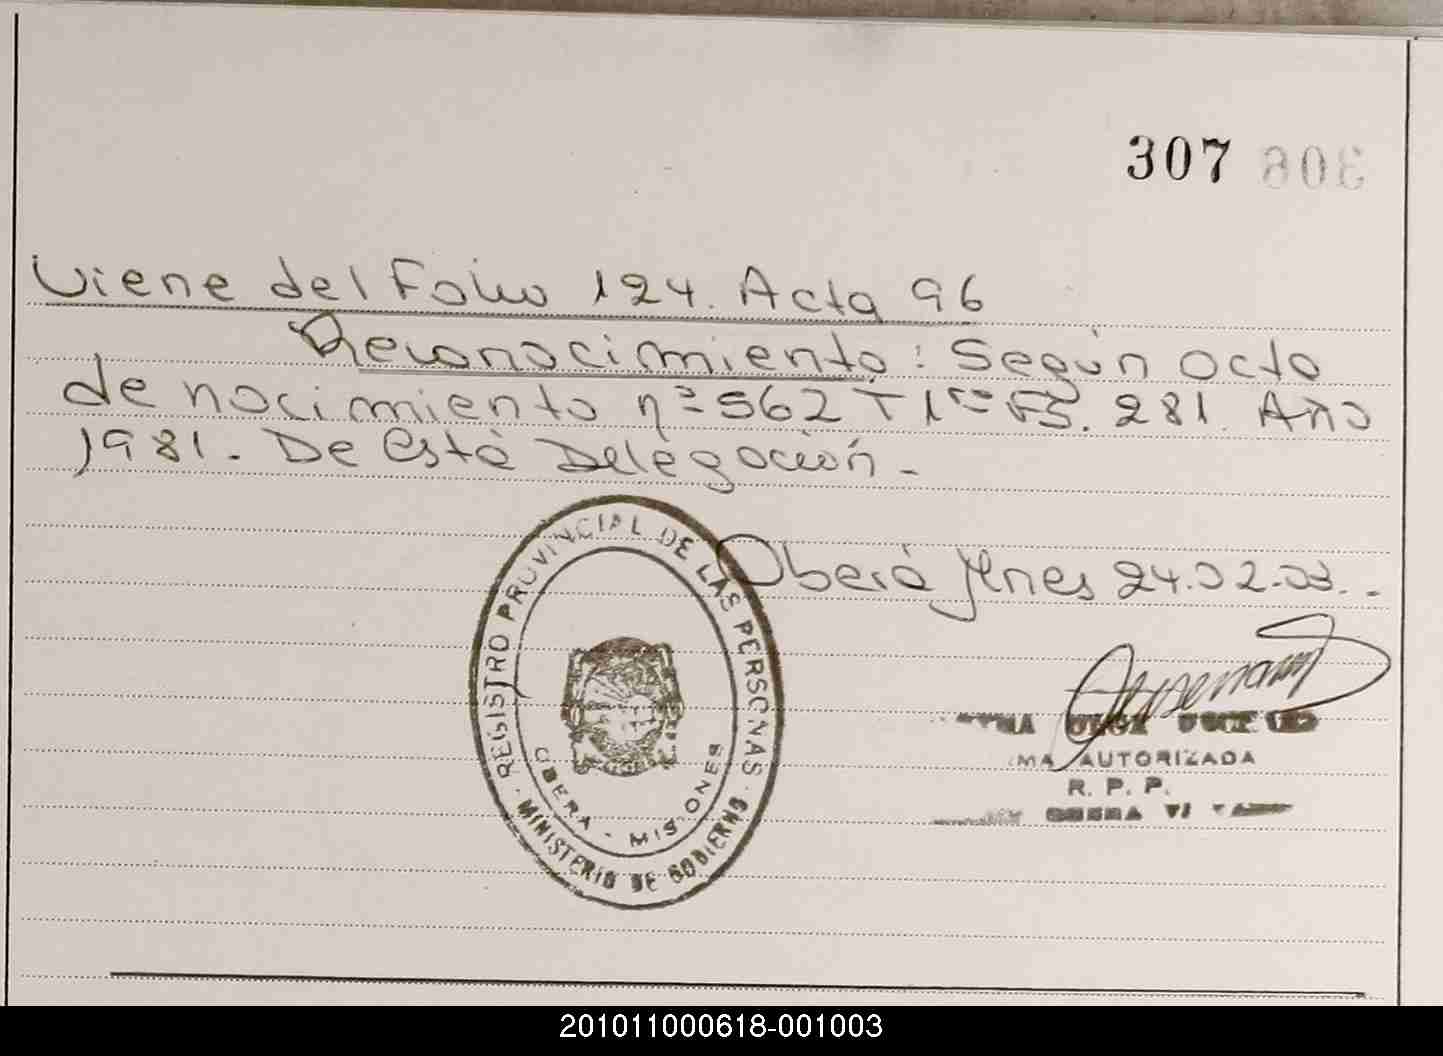 307 308
Viene del Folio 124. Acta 96
Reconocimiento: Según acta
de nacimiento nº 562 T 1º Fs. 281. Año
1981. De está Delegación.-
Oberá Mnes 24.02.03.-
REGISTRO PROVINCIAL DE LAS PERSONAS
OBERA - MISIONES
MINISTERIO DE GOBIERNO
AUTORIZADA
R. P. P.
OBERA
201011000618-001003